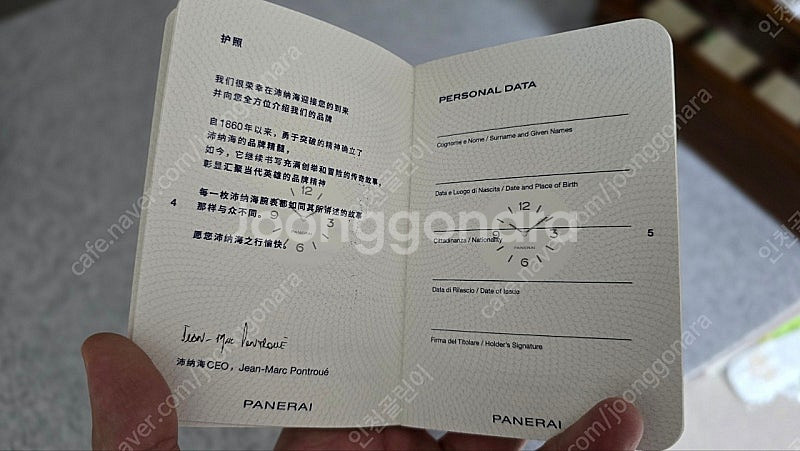 护照
我们很荣幸在沛纳海迎接您的到来
并向您全方位介绍我们的品牌
自1860年以来，勇于突破的精神确立了
沛纳海的品牌精髓，
如今，它继续书写充满创举和冒险的传奇故事，
彰显汇聚当代英雄的品牌精神
每一枚沛纳海腕表都如同其所讲述的故事
那样与众不同。
愿您沛纳海之行愉快。
12
9
3
6
PANERAI
4
Jean-Marc Pontroué
沛纳海CEO，Jean-Marc Pontroué
PANERAI
PERSONAL DATA
Cognome e Nome / Surname and Given Names
Data e Luogo di Nascita / Date and Place of Birth
12
9
3
PANERAI
6
Cittadinanza / Nationality
5
Data di Rilascio / Date of Issue
Firma del Titolare / Holder's Signature
PANERAI
joonggonara
cafe.naver.com/joonggonara
인천클린이